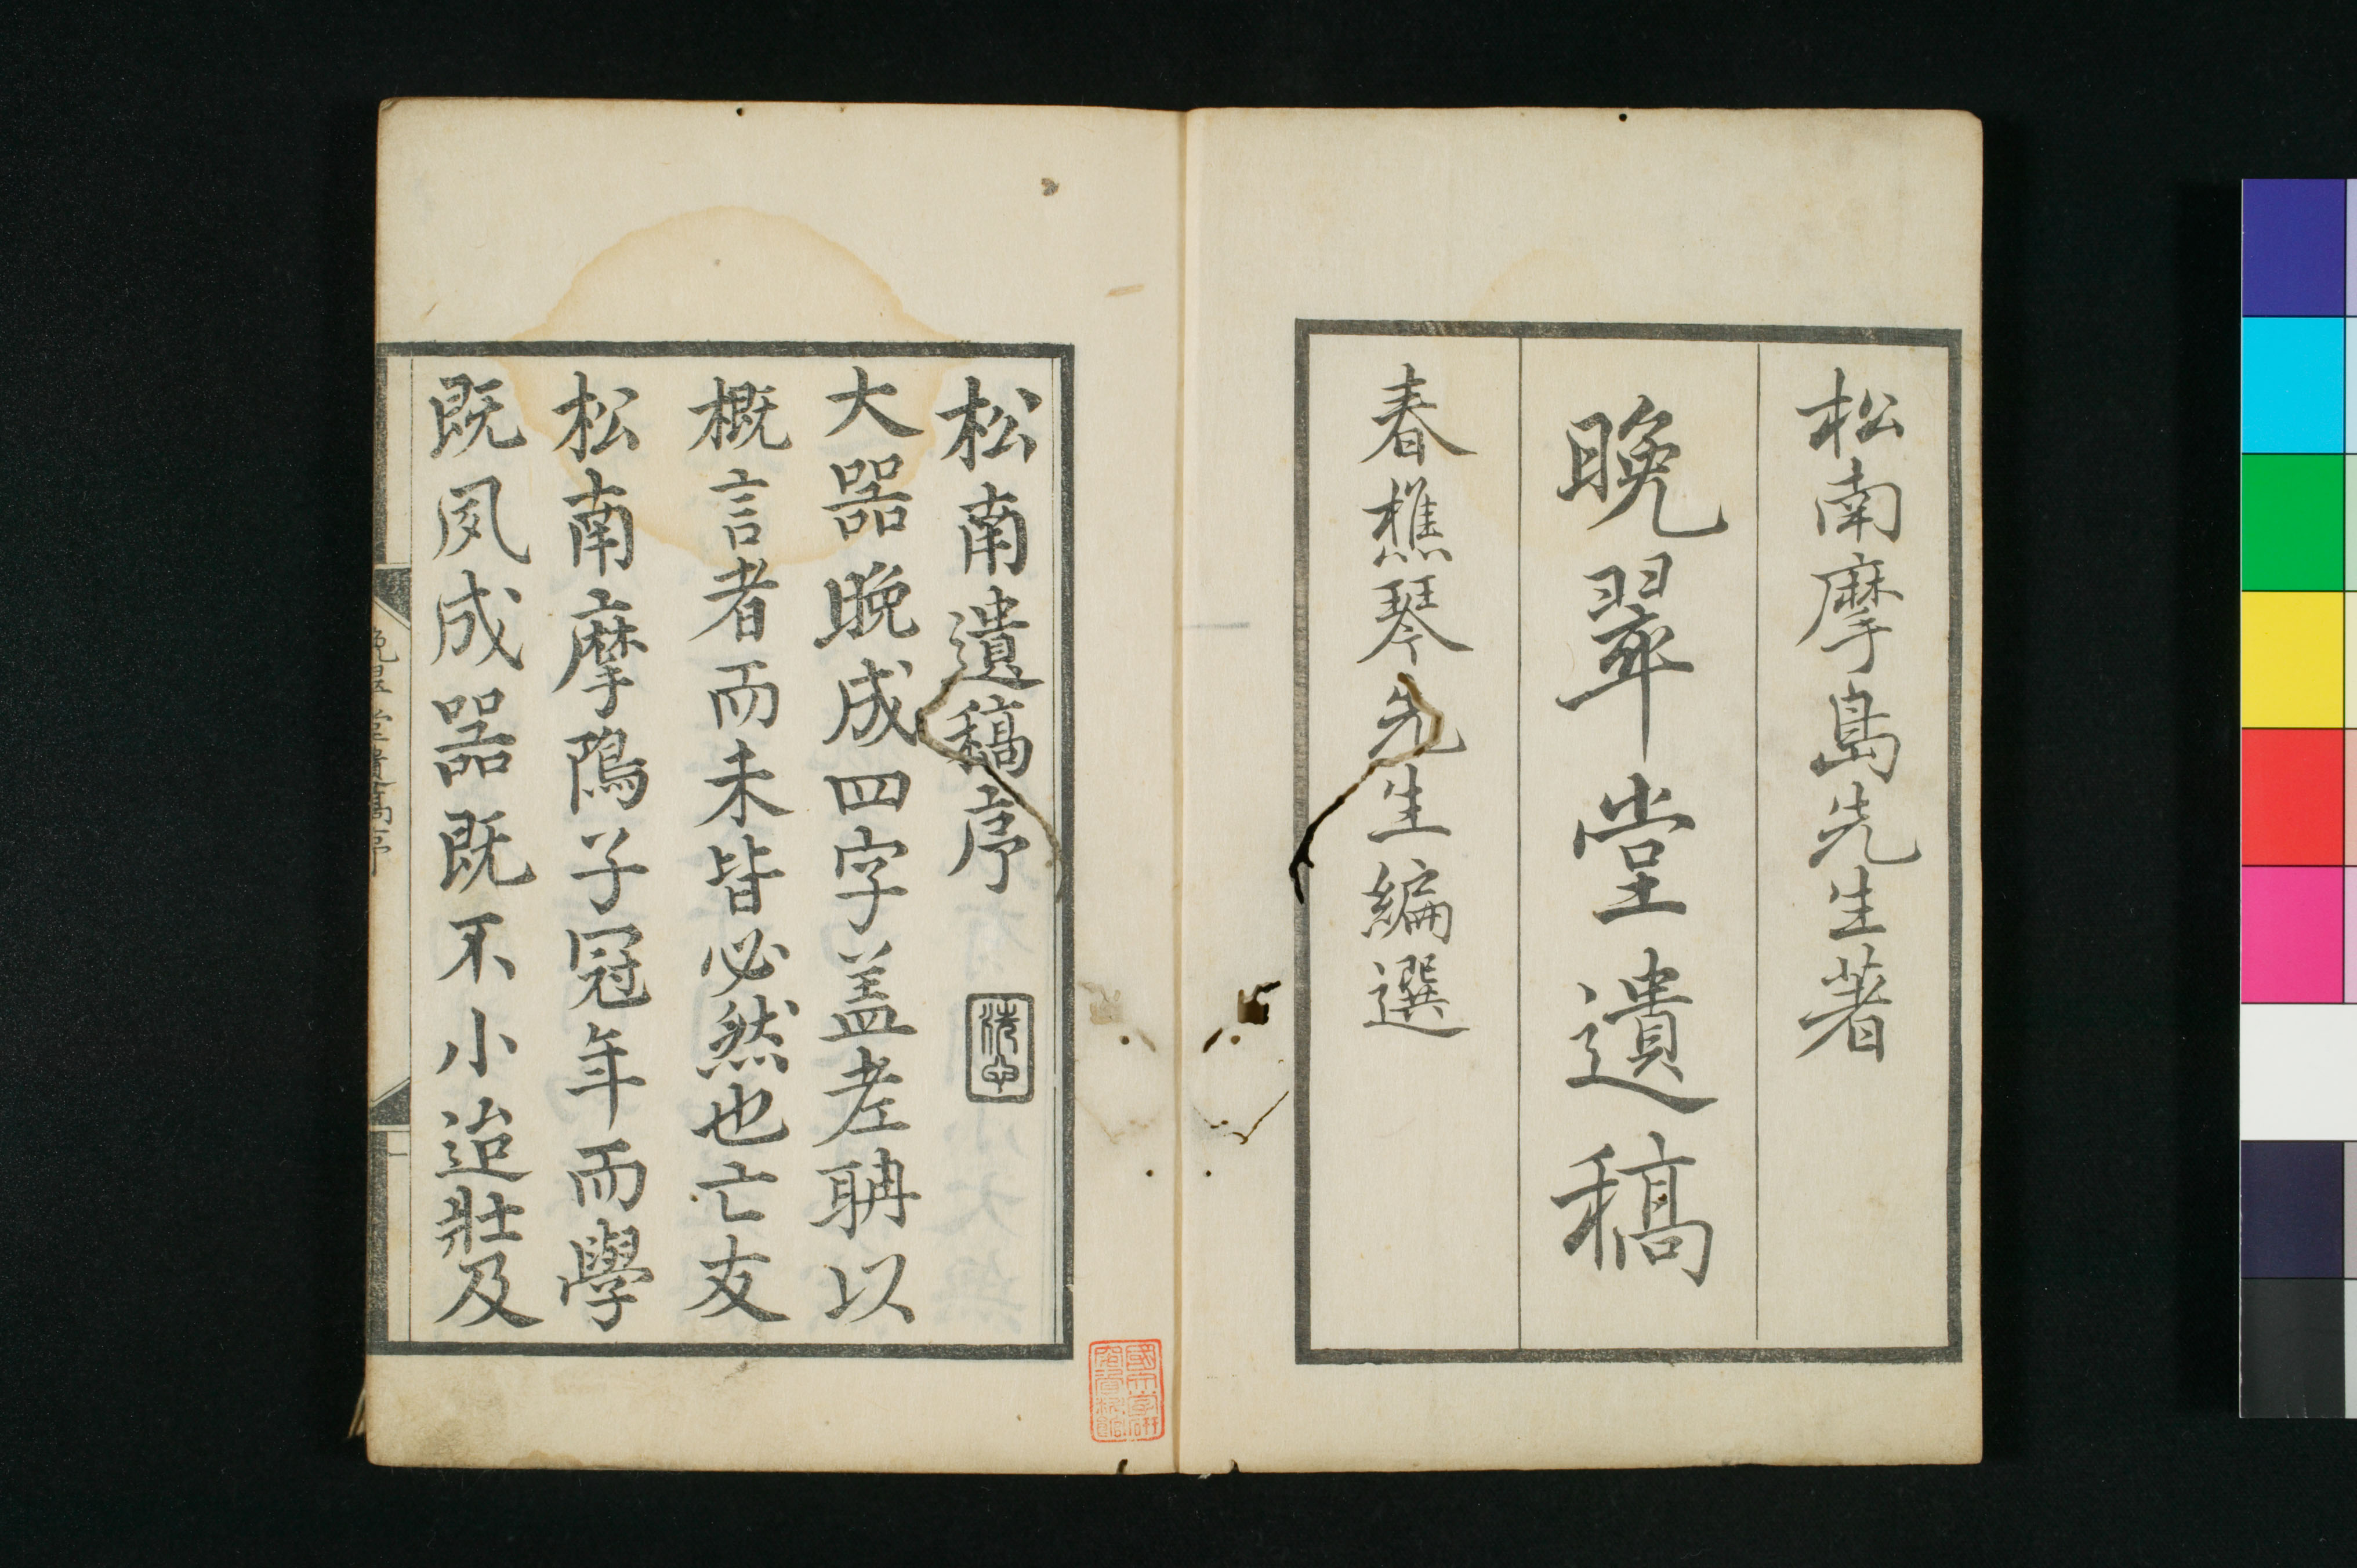 松南摩島先生著
晩翠堂遺稿
春樵琴先生編選
松南遺稿序
大器晩成四字盖老聃以
概言者而未皆必然也亡友
松南摩隝子冠年而學
既夙成器既不小迨壯及
晩翠堂遺稿序
一
國文學研究資料館